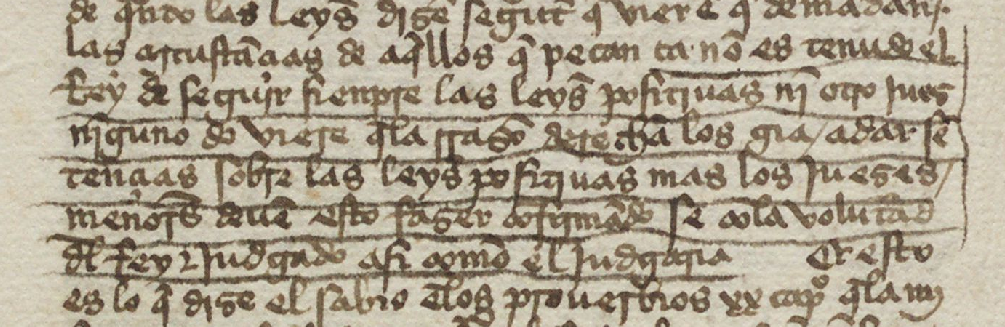 de q̃nto las leyẽs dizẽ segũt q̃ vierẽ q̃ demãdan /
las çircustãçias de aq̃llos q̃ pecan ca nõ es tenudo el
Rey de seguir sienpre las leyẽs positiuas nĩ otro juez
nĩguno do viere q̃ la rrazõ derechã los guia / a dar sẽ
tençias sobre las leyẽs positiuas mas los juezes /
menores deuẽ esto fazer cõfirmãdo se cõ la volũtad
dl̃ rey τ judgãdo asi commõ el judgaria Et esto
es lo q̃ dize el sabio ẽ los prouerbios xx capº q̃ la